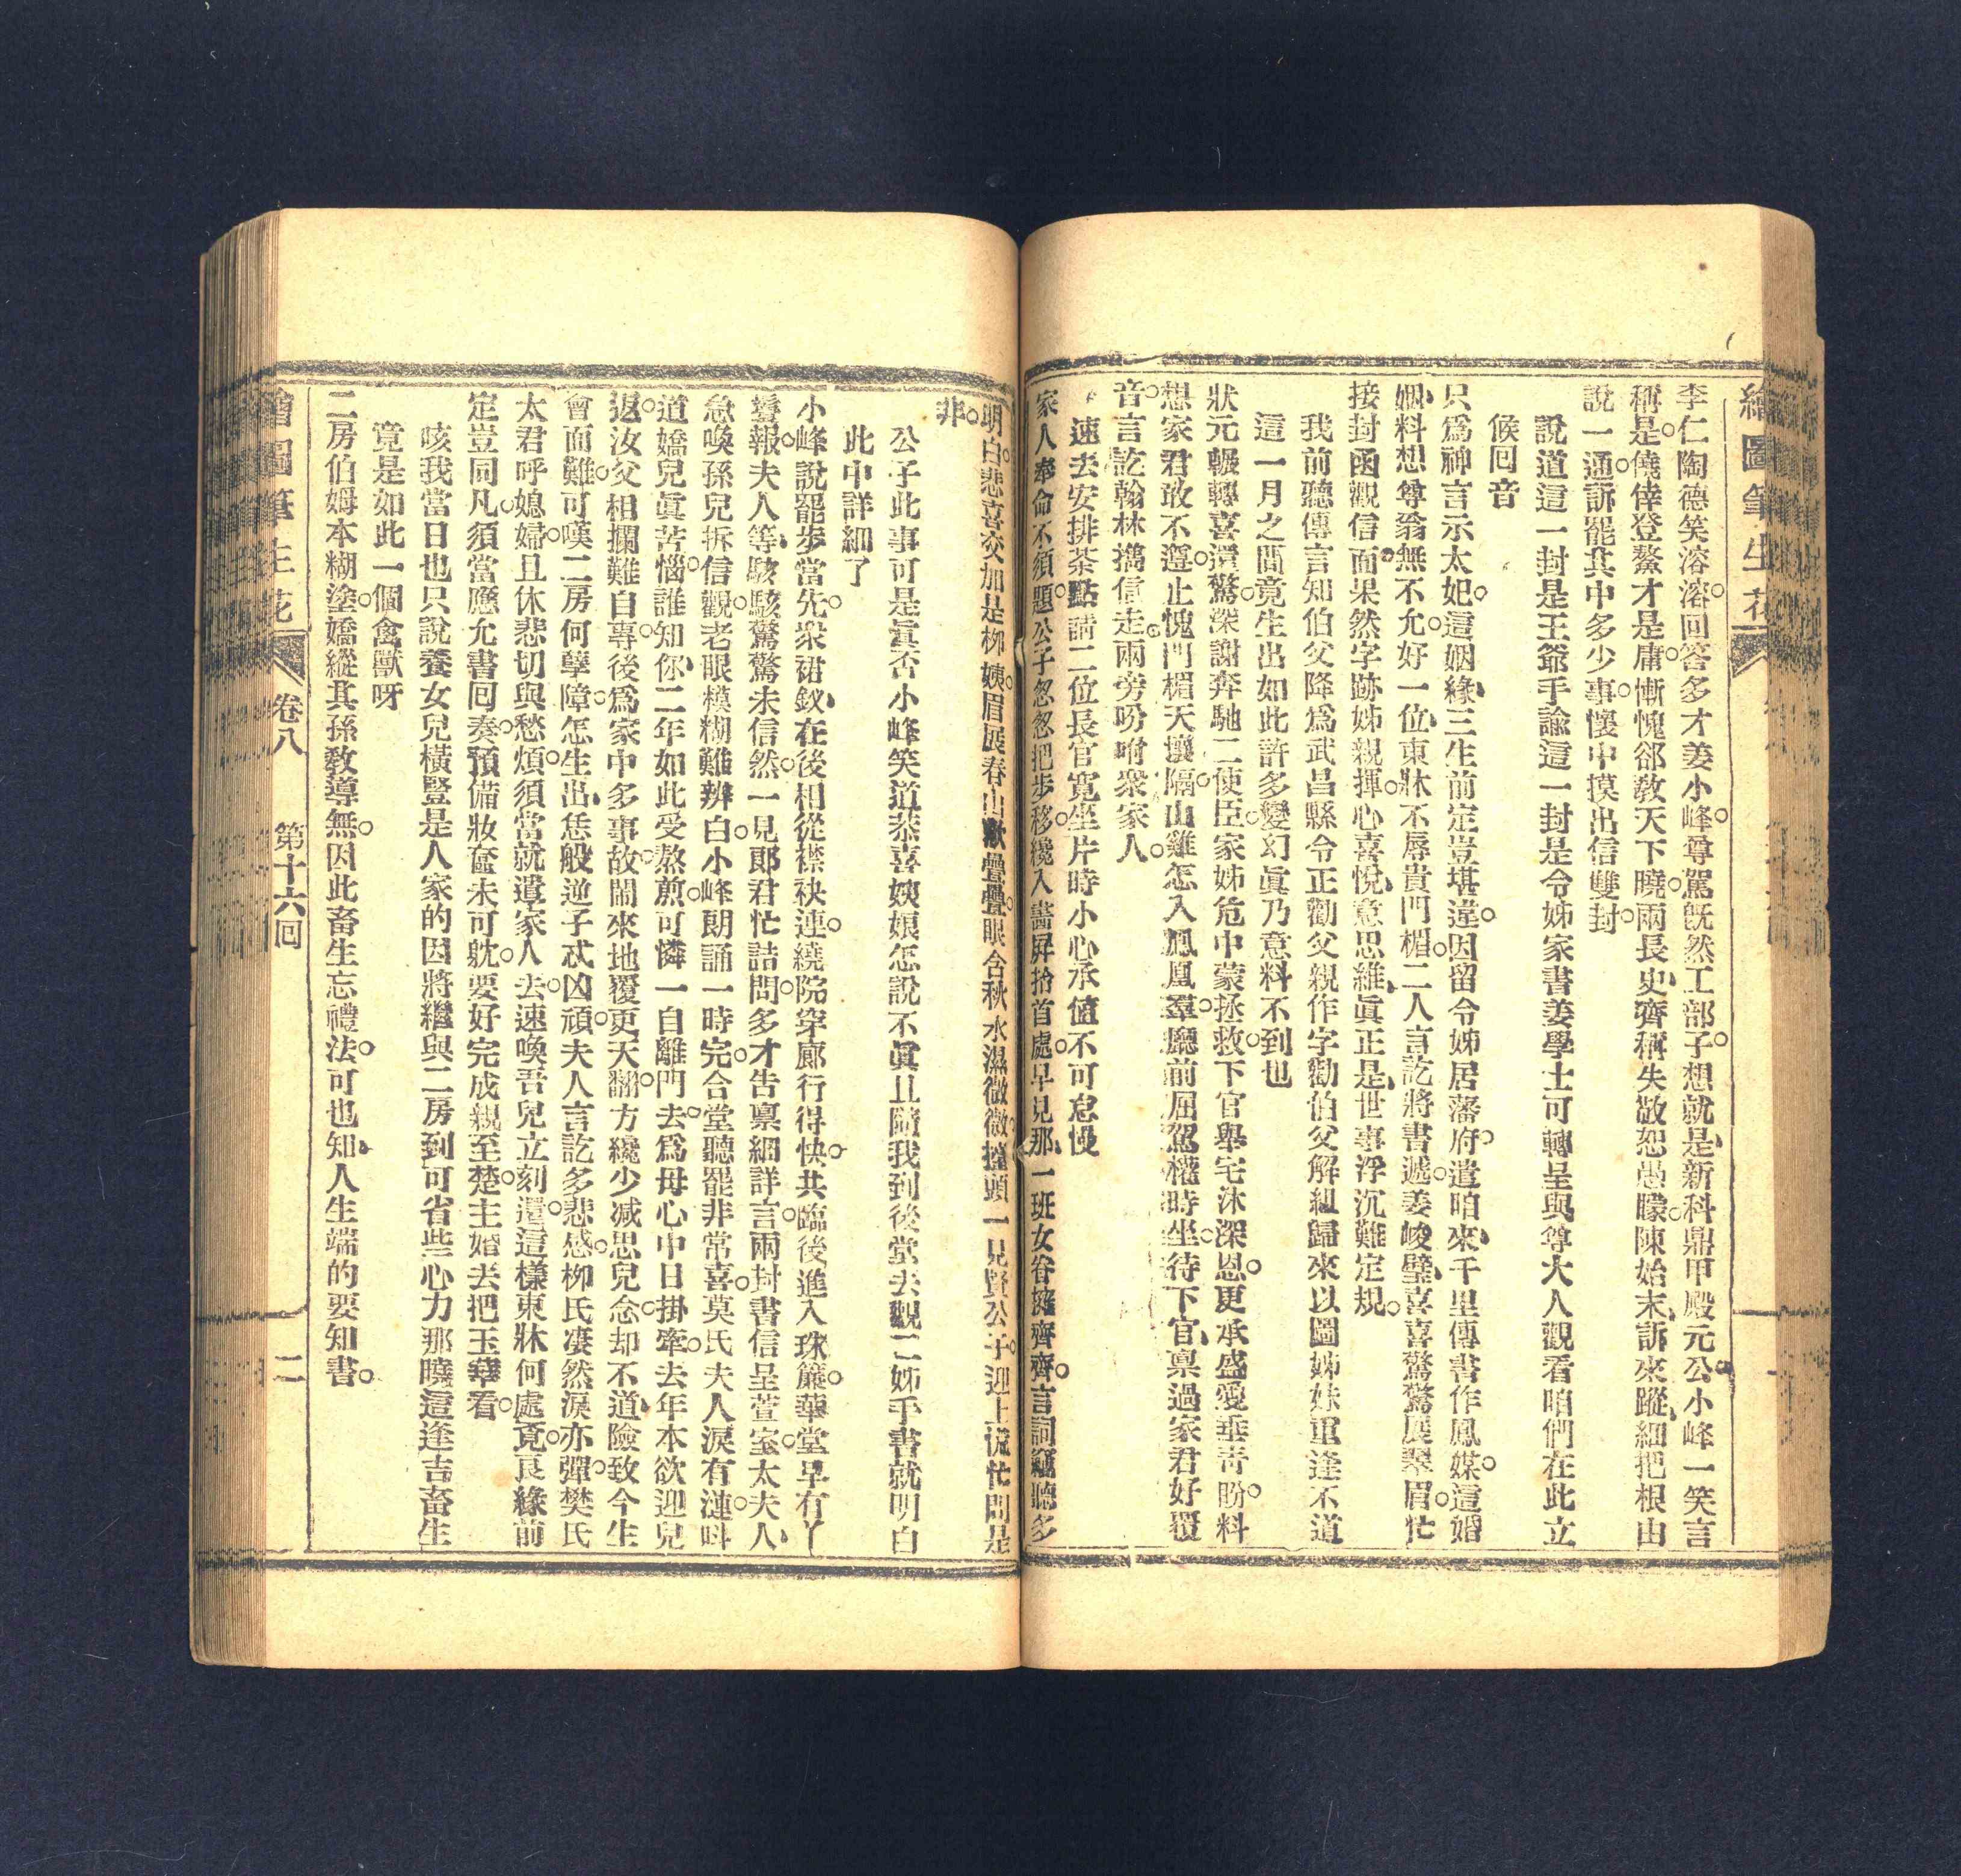 繪圖筆生花
李仁陶德笑溶溶回答多才姜小峰尊駕旣然工部子想就是新科鼎甲殿元公小峰一笑言
稱是僥倖登鰲才是庸慚愧郤敎天下曉兩長史齊稱失敬恕愚矇陳始末訴來蹤細把根由
說一通訴罷其中多少事懷中摸出信雙封
說道這一封是王爺手諭這一封是令姊家書姜學士可轉呈與尊大人觀看咱們在此立
候回音
只爲神言示太妃這姻緣三生前定豈堪違因留令姊居藩府遣咱來千里傳書作鳳媒這婚
姻料想尊翁無不允好一位東牀不辱貴門楣二人言訖將書遞姜峻璧喜喜驚驚展翠眉忙
接封函觀信面果然字跡姊親揮心喜悅意思維眞正是世事浮沉難定規
我前聽傳言知伯父降爲武昌縣令正勸父親作字勸伯父解組歸來以圖姊妹重逢不道
這一月之間竟生出如此許多變幻眞乃意料不到也
狀元輾轉喜還驚深謝奔馳二使臣家姊危中蒙拯救下官舉宅沐深恩更承盛愛垂靑盼料
想家君敢不遵止愧門楣天壤隔山雞怎入鳳凰羣廳前屈駕權時坐待下官稟過家君好覆
音言訖翰林擕信走兩旁吩咐衆家人
速去安排茶點請二位長官寬坐片時小心承値不可怠慢
家人奉命不須題公子忽忽把步移纔入畵屛拾首處早見那一班女眷擁齊齊言詞竊聽多
明白悲喜交加是柳姨眉展春山歡疊疊眼含秋水濕微微擡頭一見賢公子迎上慌忙問是
非
公子此事可是眞否小峰笑道恭喜姨娘怎說不眞且隨我到後堂去觀二姊手書就明白
此中詳細了
小峰說罷步當先衆裙釵在後相從襟袂連繞院穿廊行得快共臨後進入珠簾華堂早有丫
鬟報夫人等駭駭驚驚未信然一見郞君忙詰問多才告稟細詳言兩封書信呈萱室太夫人
急喚孫兒拆信觀老眼模糊難辨白小峰朗誦一時完合堂聽罷非常喜莫氏夫人淚有漣呌
道嬌兒眞苦惱誰知你二年如此受熬煎可憐一自離門去爲母心中日掛牽去年本欲迎兒
返汝父相攔難自專後爲家中多事故鬧來地覆更天翻方纔少减思兒念却不道險致今生
會面難可嘆二房何孽障怎生出恁般逆子忒凶頑夫人言訖多悲感柳氏凄然淚亦彈樊氏
太君呼媳婦且休悲切與愁煩須當就遣家人去速喚吾兒立刻還這樣東牀何處覓良緣前
定豈同凡須當應允書回奏預備妝奩未可躭要好完成親至楚主婚去把玉華看
咳我當日也只說養女兒橫豎是人家的因將繼與二房到可省些心力那曉這逢吉畜生
竟是如此一個禽獸呀
二房伯姆本糊塗嬌縱其孫敎導無因此畜生忘禮法可也知人生端的要知書
繪圖筆生花
卷八
第十六回
二